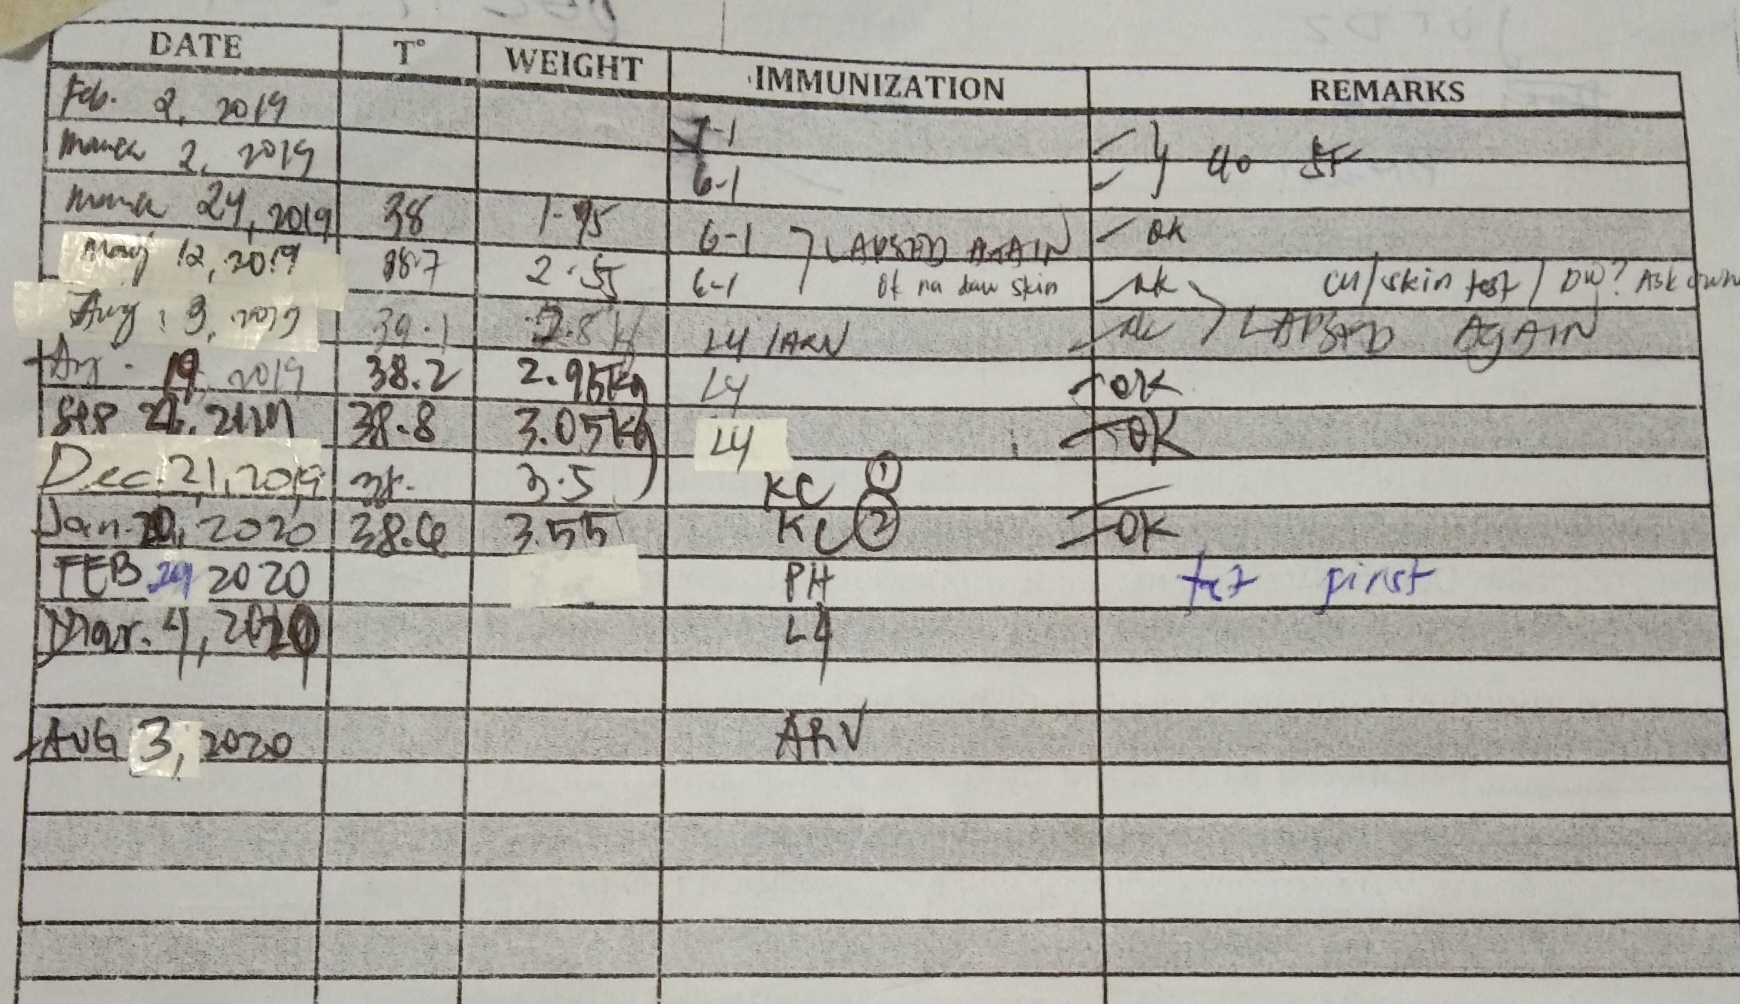 DATE T° WEIGHT IMMUNIZATION REMARKS
Feb. 2, 2019 7-1
March 2, 2019 6-1 40
March 24, 2019 38 1.75 6-1 LAPSED AGAIN OK
May 12, 2019 38.7 2.55 6-1 Ok na daw skin ok CU/skin test/ DW? Ask own
Aug. 3, 2019 39.1 2.8 L4 /ARV ok LAPSED AGAIN
Aug. 19, 2019 38.2 2.95kg L4 OK
Sep 38.8 3.05kg L4 OK
Dec. 21, 2019 38. 3.5 KC 1
Jan. 20, 2020 38.6 3.55 KC 2 OK
FEB 29 2020 PH first
Mar. 4, 2020 L4
AUG 3, 2020 ARV